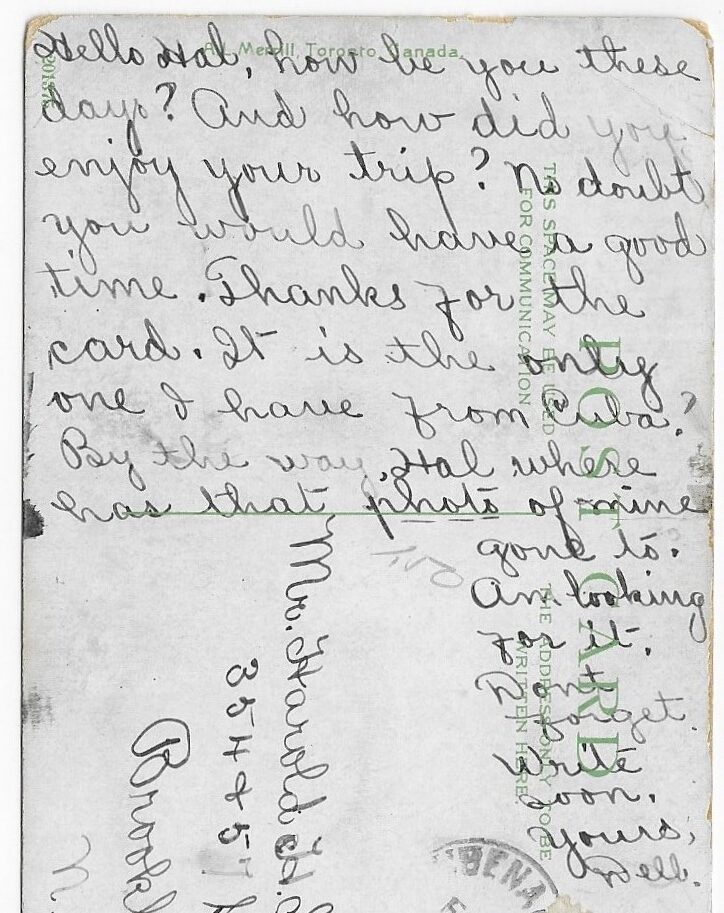 Hello Hal, how be you these
days? And how did you
enjoy your trip? No doubt
you would have a good
time. Thanks for the
card. It is the only
one I have from Cuba?
By the way, Hal where
has that photo of mine
gone to.
Am looking
for it.
Dont
forget.
Write
soon.
Yours,
Dell.
Mr. Harold H.
354 + 5
Brookl
N
1.50
A.L. Merrill, Toronto, Canada.
POST CARD
THIS SPACE MAY BE USED
FOR COMMUNICATION
THE ADDRESS ONLY TO BE
WRITTEN HERE.
BENA